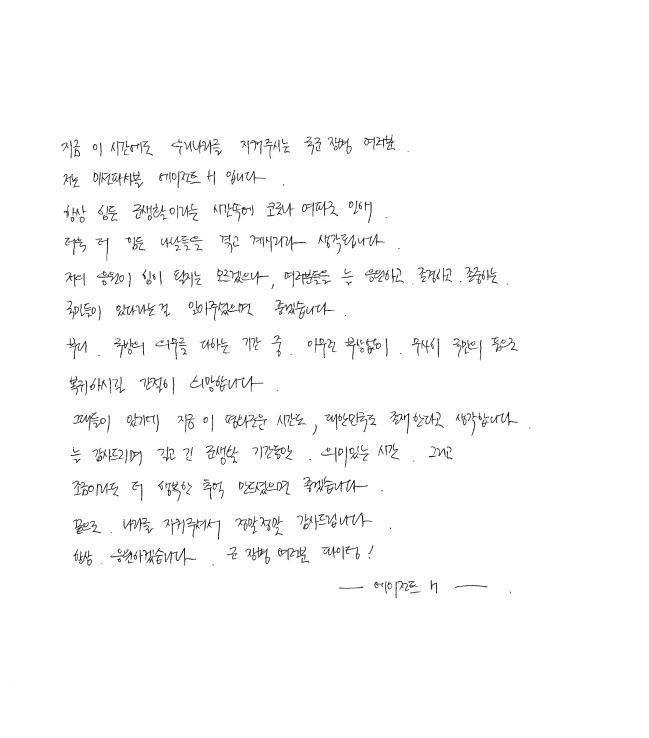 지금 이 시간에도 우리나라를 지켜주시는 국군 장병 여러분.
저는 미션파서블 에이전트 H 입니다.
항상 힘든 군생활이라는 시간속에 코로나 여파로 인해.
더욱 더 힘든 나날들을 겪고 계시리라 생각됩니다.
저의 응원이 힘이 될지는 모르겠으나, 여러분들을 늘 응원하고. 존경하고. 존중하는.
국민들이 있다라는걸 알아주셨으면 좋겠습니다.
부디. 국방의 의무를 다하는 기간 중. 아무런 부상없이. 무사히 국민의 품으로
복귀하시길 간절히 희망합니다.
그대들이 있기에 지금 이 평화로운 시간도, 대한민국도 존재한다고 생각합니다.
늘 감사드리며 길고 긴 군생활 기간동안. 의미있는 시간. 그리고
조금이라도 더 행복한 추억 만드셨으면 좋겠습니다.
끝으로. 나라를 지켜주셔서 정말정말 감사드립니다.
항상. 응원하겠습니다. 군 장병 여러분 파이팅!
— 에이전트 H —.